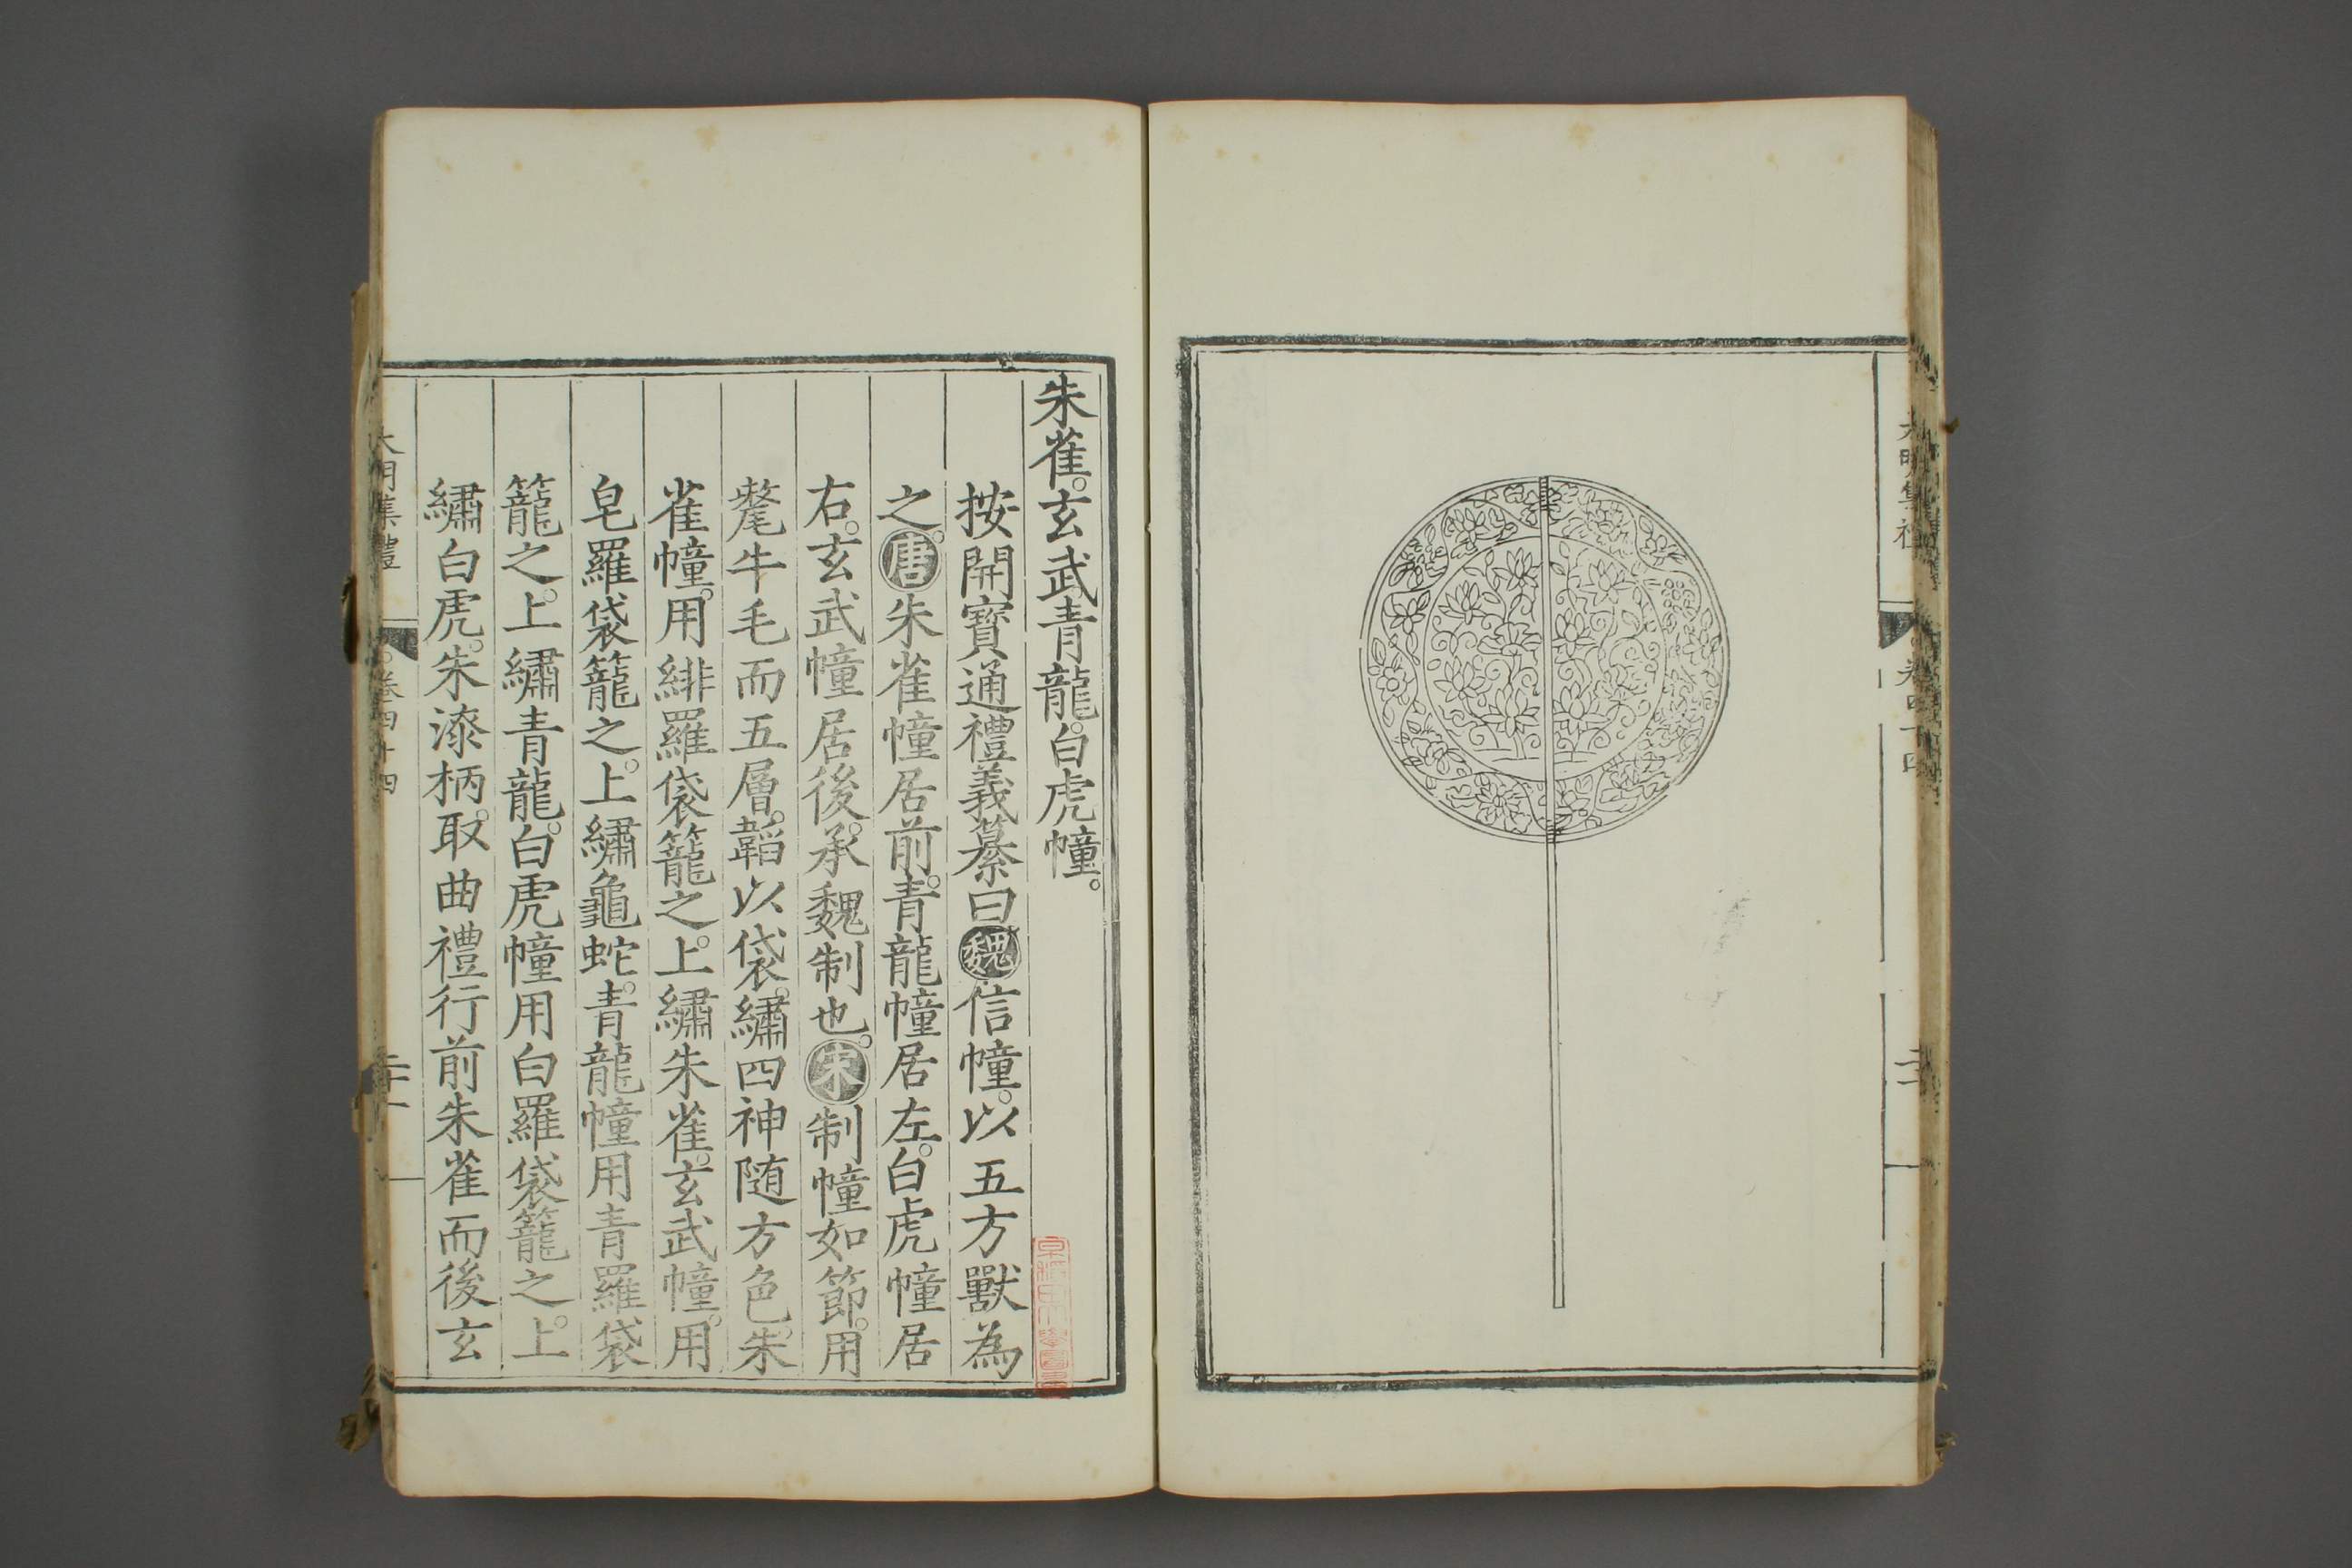 大明集禮
卷四十四
朱雀。玄武青龍。白虎幢。
按開寶通禮義纂曰魏信幢。以五方獸為
之。唐朱雀幢居前。青龍幢居左。白虎幢居
右。玄武幢居後。承魏制也。宋制幢如節。用
氂牛毛而五層。韜以袋。繡四神隨方色。朱
雀幢。用緋羅袋籠之。上繡朱雀。玄武幢。用
皂羅袋籠之。上繡龜蛇。青龍幢用青羅袋
籠之。上繡青龍。白虎幢用白羅袋籠之。上
繡白虎。朱漆柄。取曲禮行前朱雀而後玄
大明集禮
卷四十四